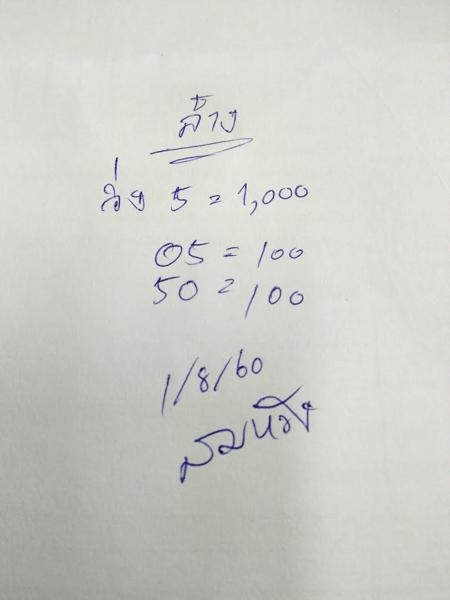 ล่าง
วิ่ง 5 = 1,000
05 = 100
50 = 100
1/8/60
สมหวัง